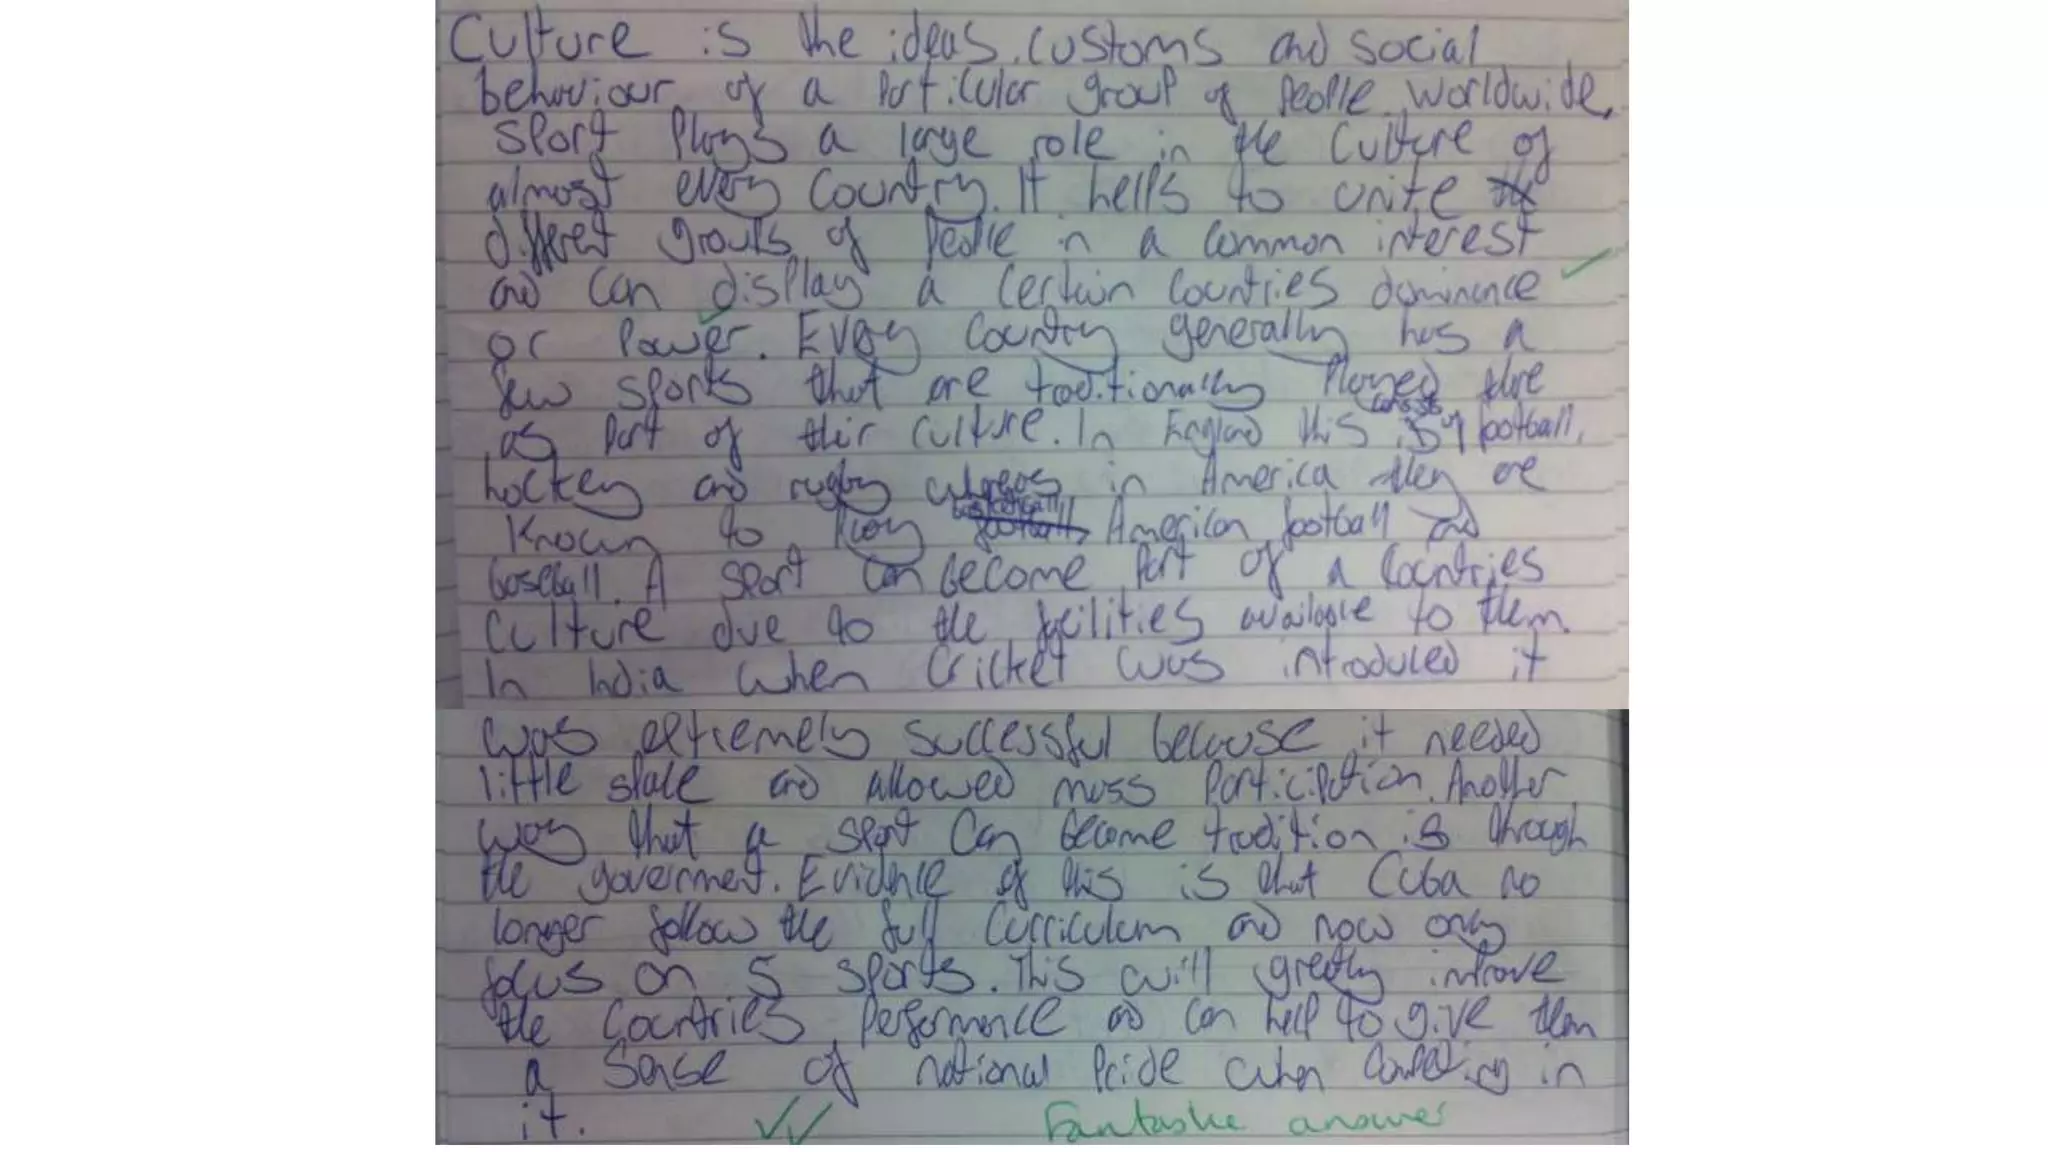 Culture is the ideas, customs and social
behaviour of a particular group of people worldwide.
Sport plays a large role in the culture of
almost every country. It helps to unite the
different groups of people in a common interest
and can display a certain countries dominence
or power. Every country generally has a
few sports that are traditionally played there
as part of their culture. In England this consists of football,
hockey and rugby whereas in America they are
known to play basketball, American football and
baseball. A sport can become part of a countries
culture due to the facilities available to them.
In India when cricket was introduced it
was extremely successful because it needed
little space and allowed mass participation. Another
way that a sport can become tradition is through
the goverment. Evidence of this is that Cuba no
longer follow the full curriculum and now only
focus on 5 sports. This will greatly improve
the countries performance and can help to give them
a sense of national pride when competing in
it.
Fantastic answer